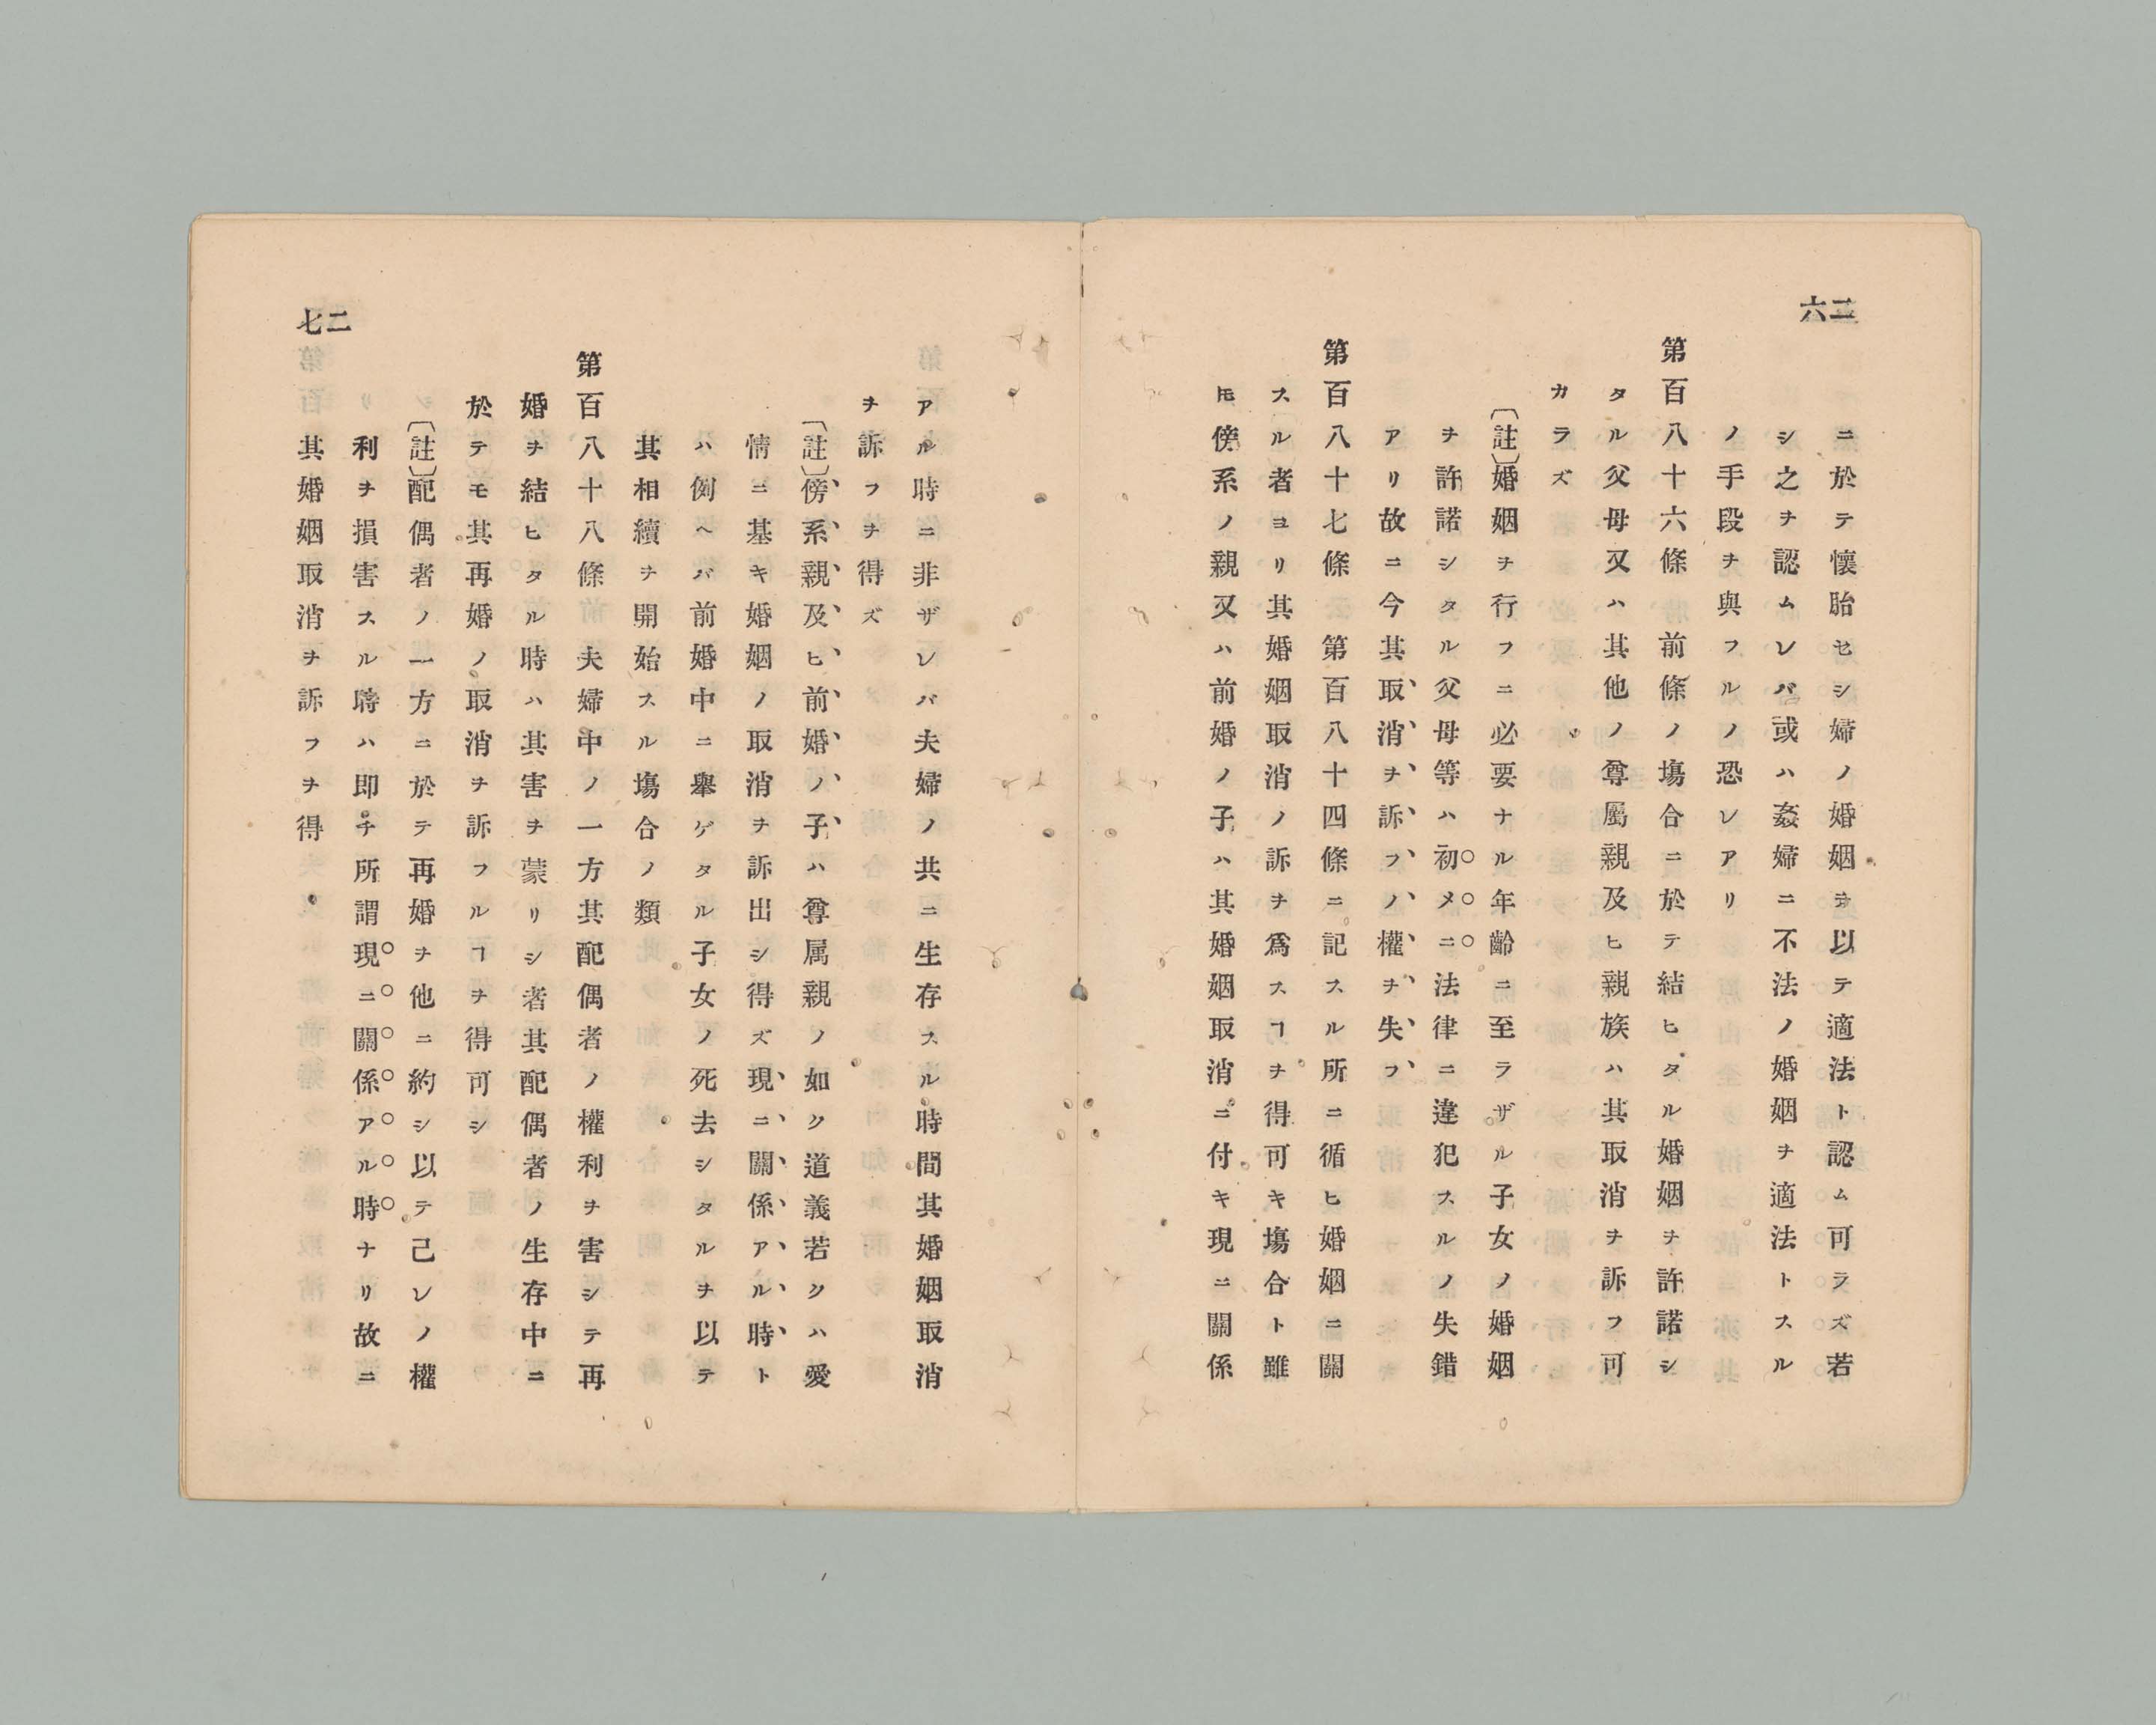 二六
ニ於テ懷胎セシ婦ノ婚姻ヲ以テ適法ト認ム可ラズ若
シ之ヲ認ムレバ或ハ姦婦ニ不法ノ婚姻ヲ適法トスル
ノ手段ヲ與フルノ恐レアリ
第百八十六條　前條ノ塲合ニ於テ結ヒタル婚姻ヲ許諾シ
タル父母又ハ其他ノ尊屬親及ヒ親族ハ其取消ヲ訴フ可
カラズ
〔註〕婚姻ヲ行フニ必要ナル年齡ニ至ラザル子女ノ婚姻
ヲ許諾シタル父母等ハ初メニ法律ニ違犯スルノ失錯
アリ故ニ今其取消ヲ訴フノ權ヲ失フ
第百八十七條　第百八十四條ニ記スル所ニ循ヒ婚姻ニ關
スル者ヨリ其婚姻取消ノ訴ヲ爲スヿヲ得可キ塲合ト雖
𪜈傍系ノ親又ハ前婚ノ子ハ其婚姻取消ニ付キ現ニ關係
二七
アル時ニ非ザレバ夫婦ノ共ニ生存スル時間其婚姻取消
ヲ訴フヲ得ズ
〔註〕傍系親及ヒ前婚ノ子ハ尊属親ノ如ク道義若クハ愛
情ニ基キ婚姻ノ取消ヲ訴出シ得ズ現ニ關係アル時ト
ハ例ヘバ前婚中ニ擧ゲタル子女ノ死去シタルヲ以テ
其相續ヲ開始スル塲合ノ類
第百八十八條　前夫婦中ノ一方其配偶者ノ權利ヲ害シテ再
婚ヲ結ヒタル時ハ其害ヲ蒙リシ者其配偶者ノ生存中ニ
於テモ其再婚ノ取消ヲ訴フルヿヲ得可シ
〔註〕配偶者ノ一方ニ於テ再婚ヲ他ニ約シ以テ己レノ權
利ヲ損害スル時ハ即チ所謂現ニ關係アル時ナリ故ニ
其婚姻取消ヲ訴フヲ得